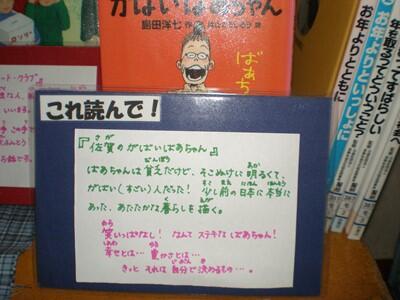 がばいばあちゃん
島田洋七 作
ばあち
これ読んで!
『佐賀のがばいばあちゃん』
ばあちゃんは貧乏だけど、そこぬけに明るくて、
がばい(すごい)人だった! 少し前の日本に本当に
あった、あたたかな暮らしを描く。
笑いっぱなし! なんて ステキな ばあちゃん!
幸せとは…豊かさとは…
きっと それは 自分で決めるもの…。
お年よりとともに
お年よりといっしょに
年を取るってどういうこと?